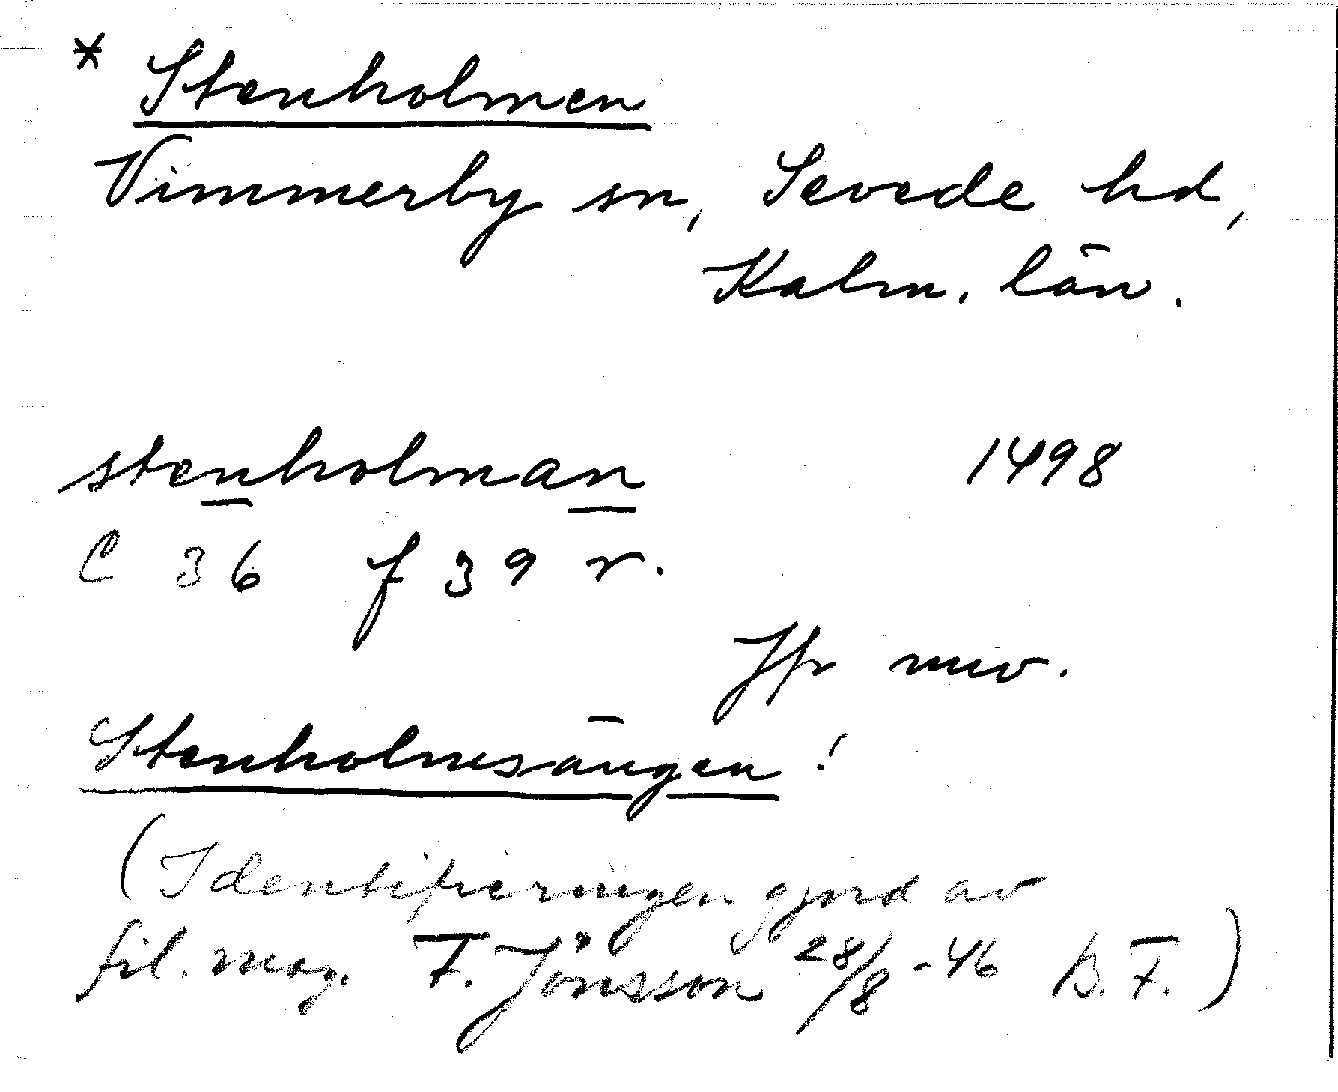 * Stenholmen
Vimmerby sn, Sevede hd,
Kalm. län.
stenholman 1498
C 36 f 39 r.
Jfr nuv.
Stenholmsängen!
(Identifieringen gjord av
fil. mag. F. Jönsson 28/8 -46 B. F.)